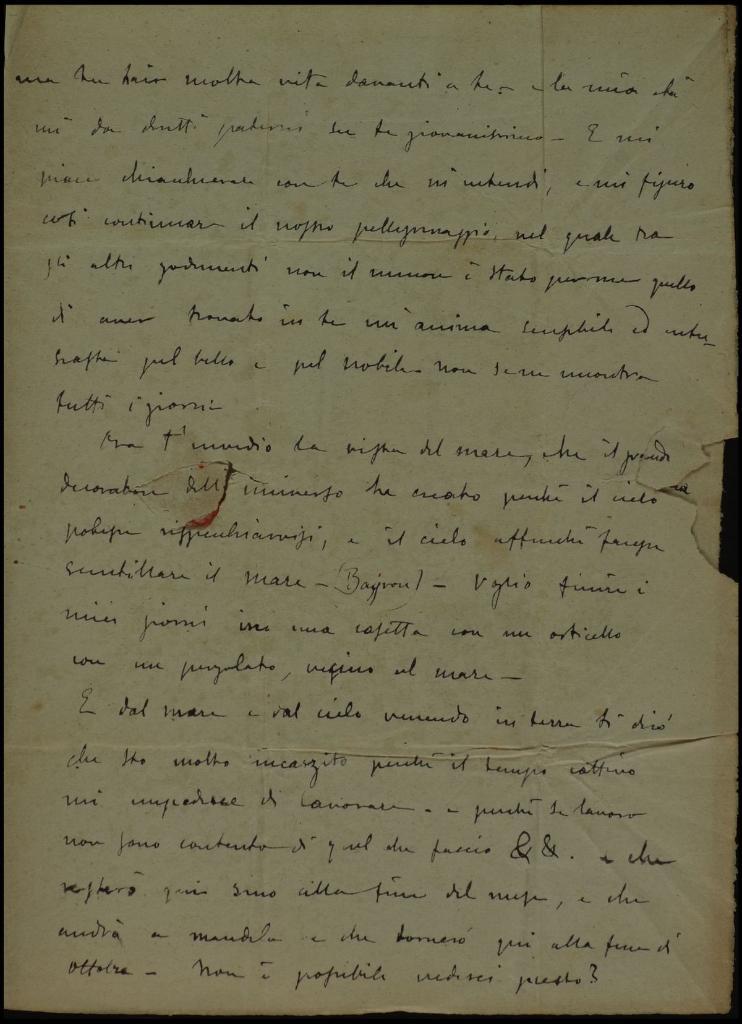 ma tu hai molta vita davanti a te – e la mia età
mi da dritti paterni su te giovanissimo – E mi
piace chiacchierare con te che m'intendi, e mi figuro
così continuare il nostro pellegrinaggio, nel quale tra
gli altri godimenti non il minore è stato per me quello
di aver trovato in te un'anima sensibile ed entu-
siasta pel bello e pel nobile non se ne incontra
tutti i giorni
Ora t'invidio la vista del mare, che il grande
decoratore dell'universo ha creato perchè il cielo
potesse rispecchiarvisi, e il cielo affinchè facesse
scintillare il mare – (Bayron) – Voglio finire i
miei giorni in una casetta con un orticello
con un pergolato, vicino al mare –
E dal mare e dal cielo venendo in terra ti dirò
che sto molto incazzito perchè il tempo cattivo
mi impedisce di lavorare – e perchè se lavoro
non sono contento di quel che faccio && – e che
resterò qui sino alla fine del mese, e che
andrò a Mandela e che tornerò qui alla fine di
Ottobre – Non è possibile vederci presto?